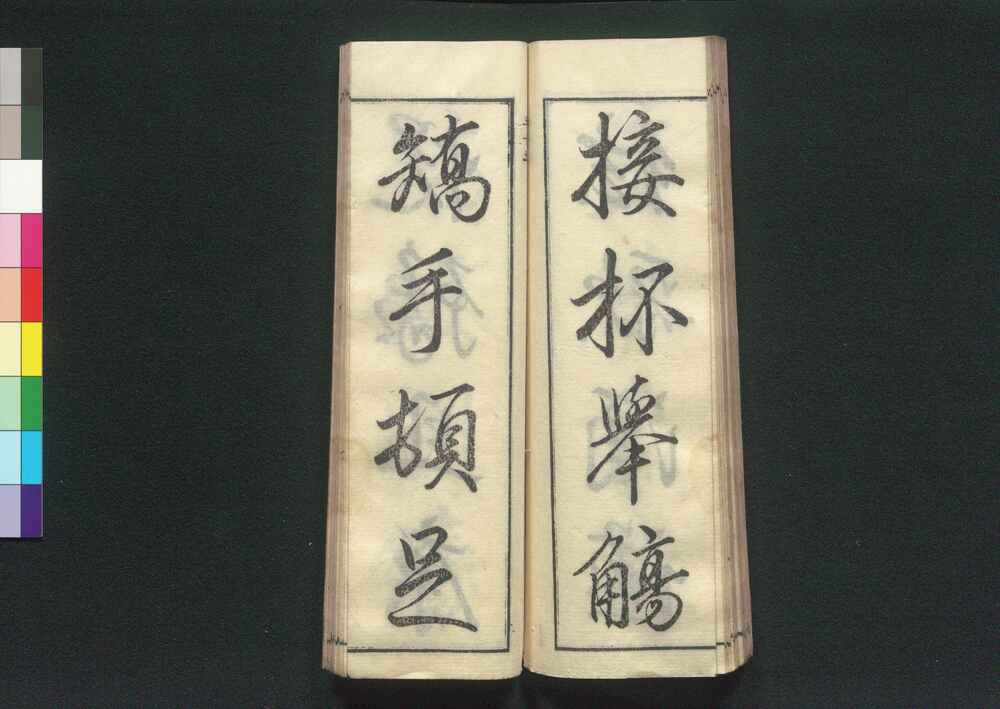 接杯舉觴
矯手頓足